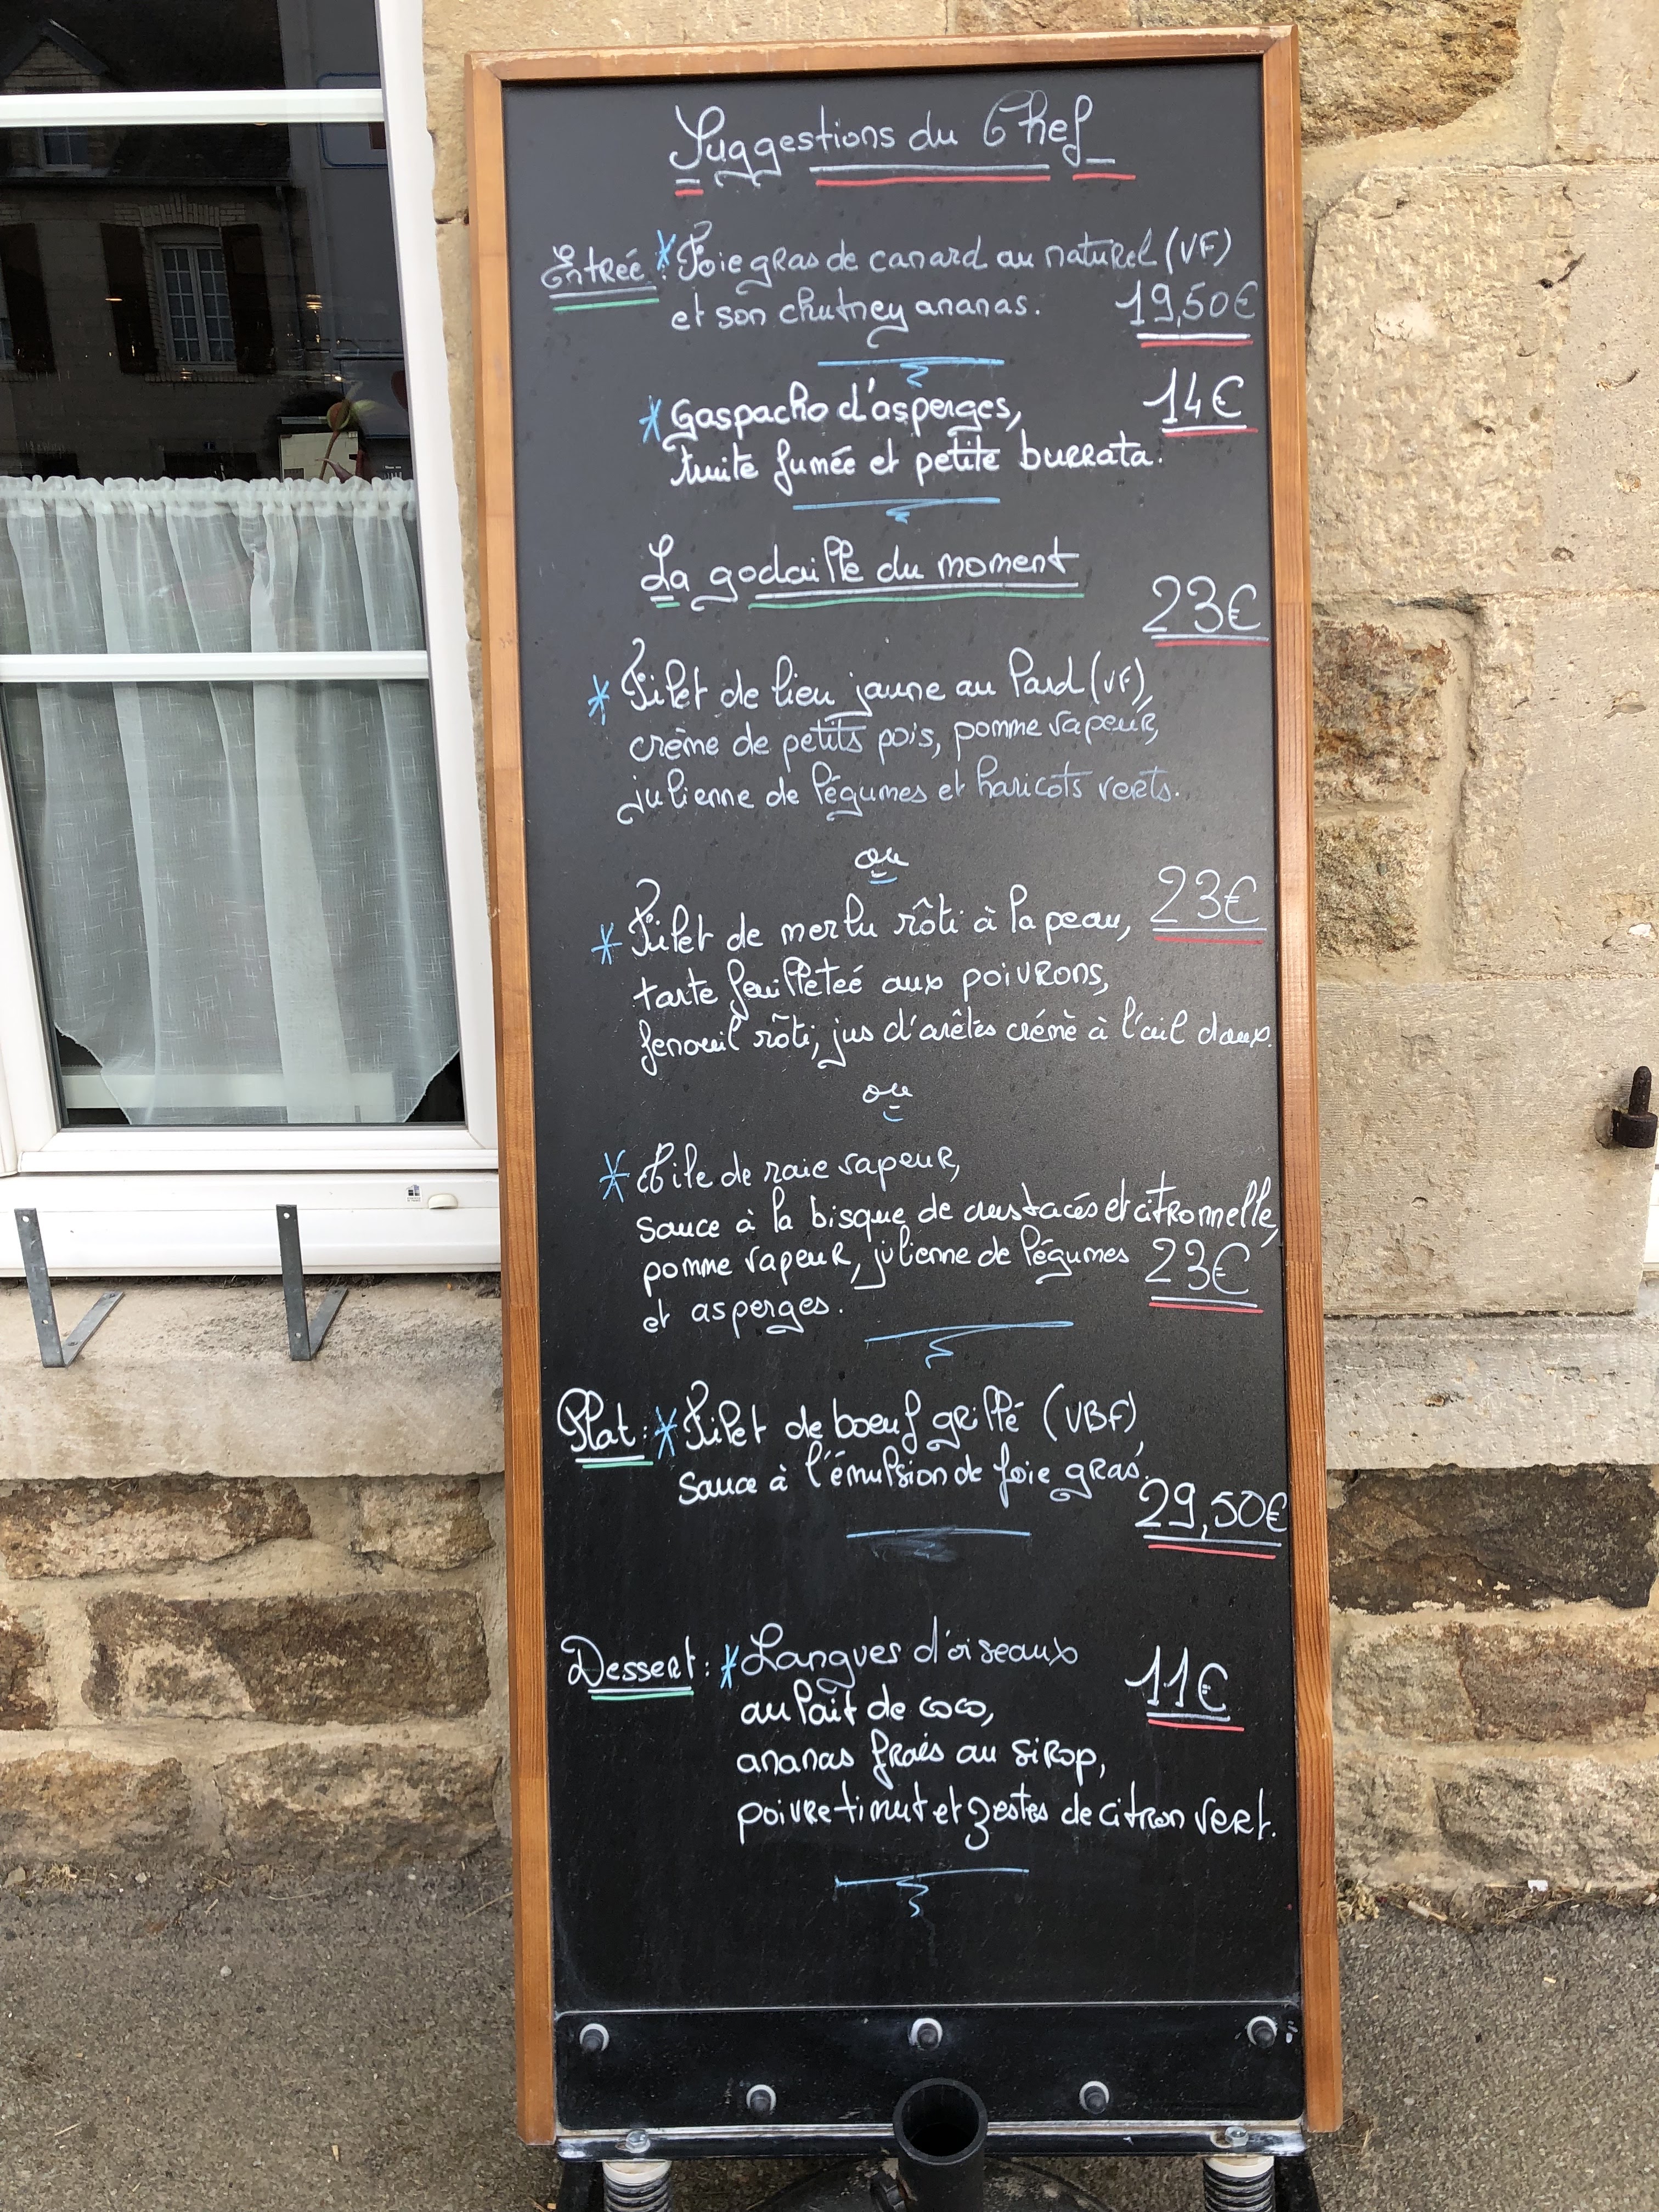 Suggestions du Chef
Entrée : * Foie gras de canard au naturel (VF)
et son chutney ananas. 19,50€
* Gaspacho d'asperges, 14€
truite fumée et petite burrata.
La godaille du moment
23€
* Filet de lieu jaune au lard (VF),
crème de petits pois, pomme vapeur,
julienne de légumes et haricots verts.
ou
* Filet de merlu rôti à la peau, 23€
tarte feuilleteé aux poivrons,
fenouil rôti, jus d'arêtes crémé à l'ail doux.
ou
* Aile de raie vapeur,
sauce à la bisque de crustacés et citronnelle,
pomme vapeur, julienne de légumes 23€
et asperges.
Plat : * Filet de boeuf grillé (VBF),
sauce à l'émulsion de foie gras.
29,50€
Dessert : * Langues d'oiseaux 11€
au lait de coco,
ananas frais au sirop,
poivre timut et zestes de citron vert.